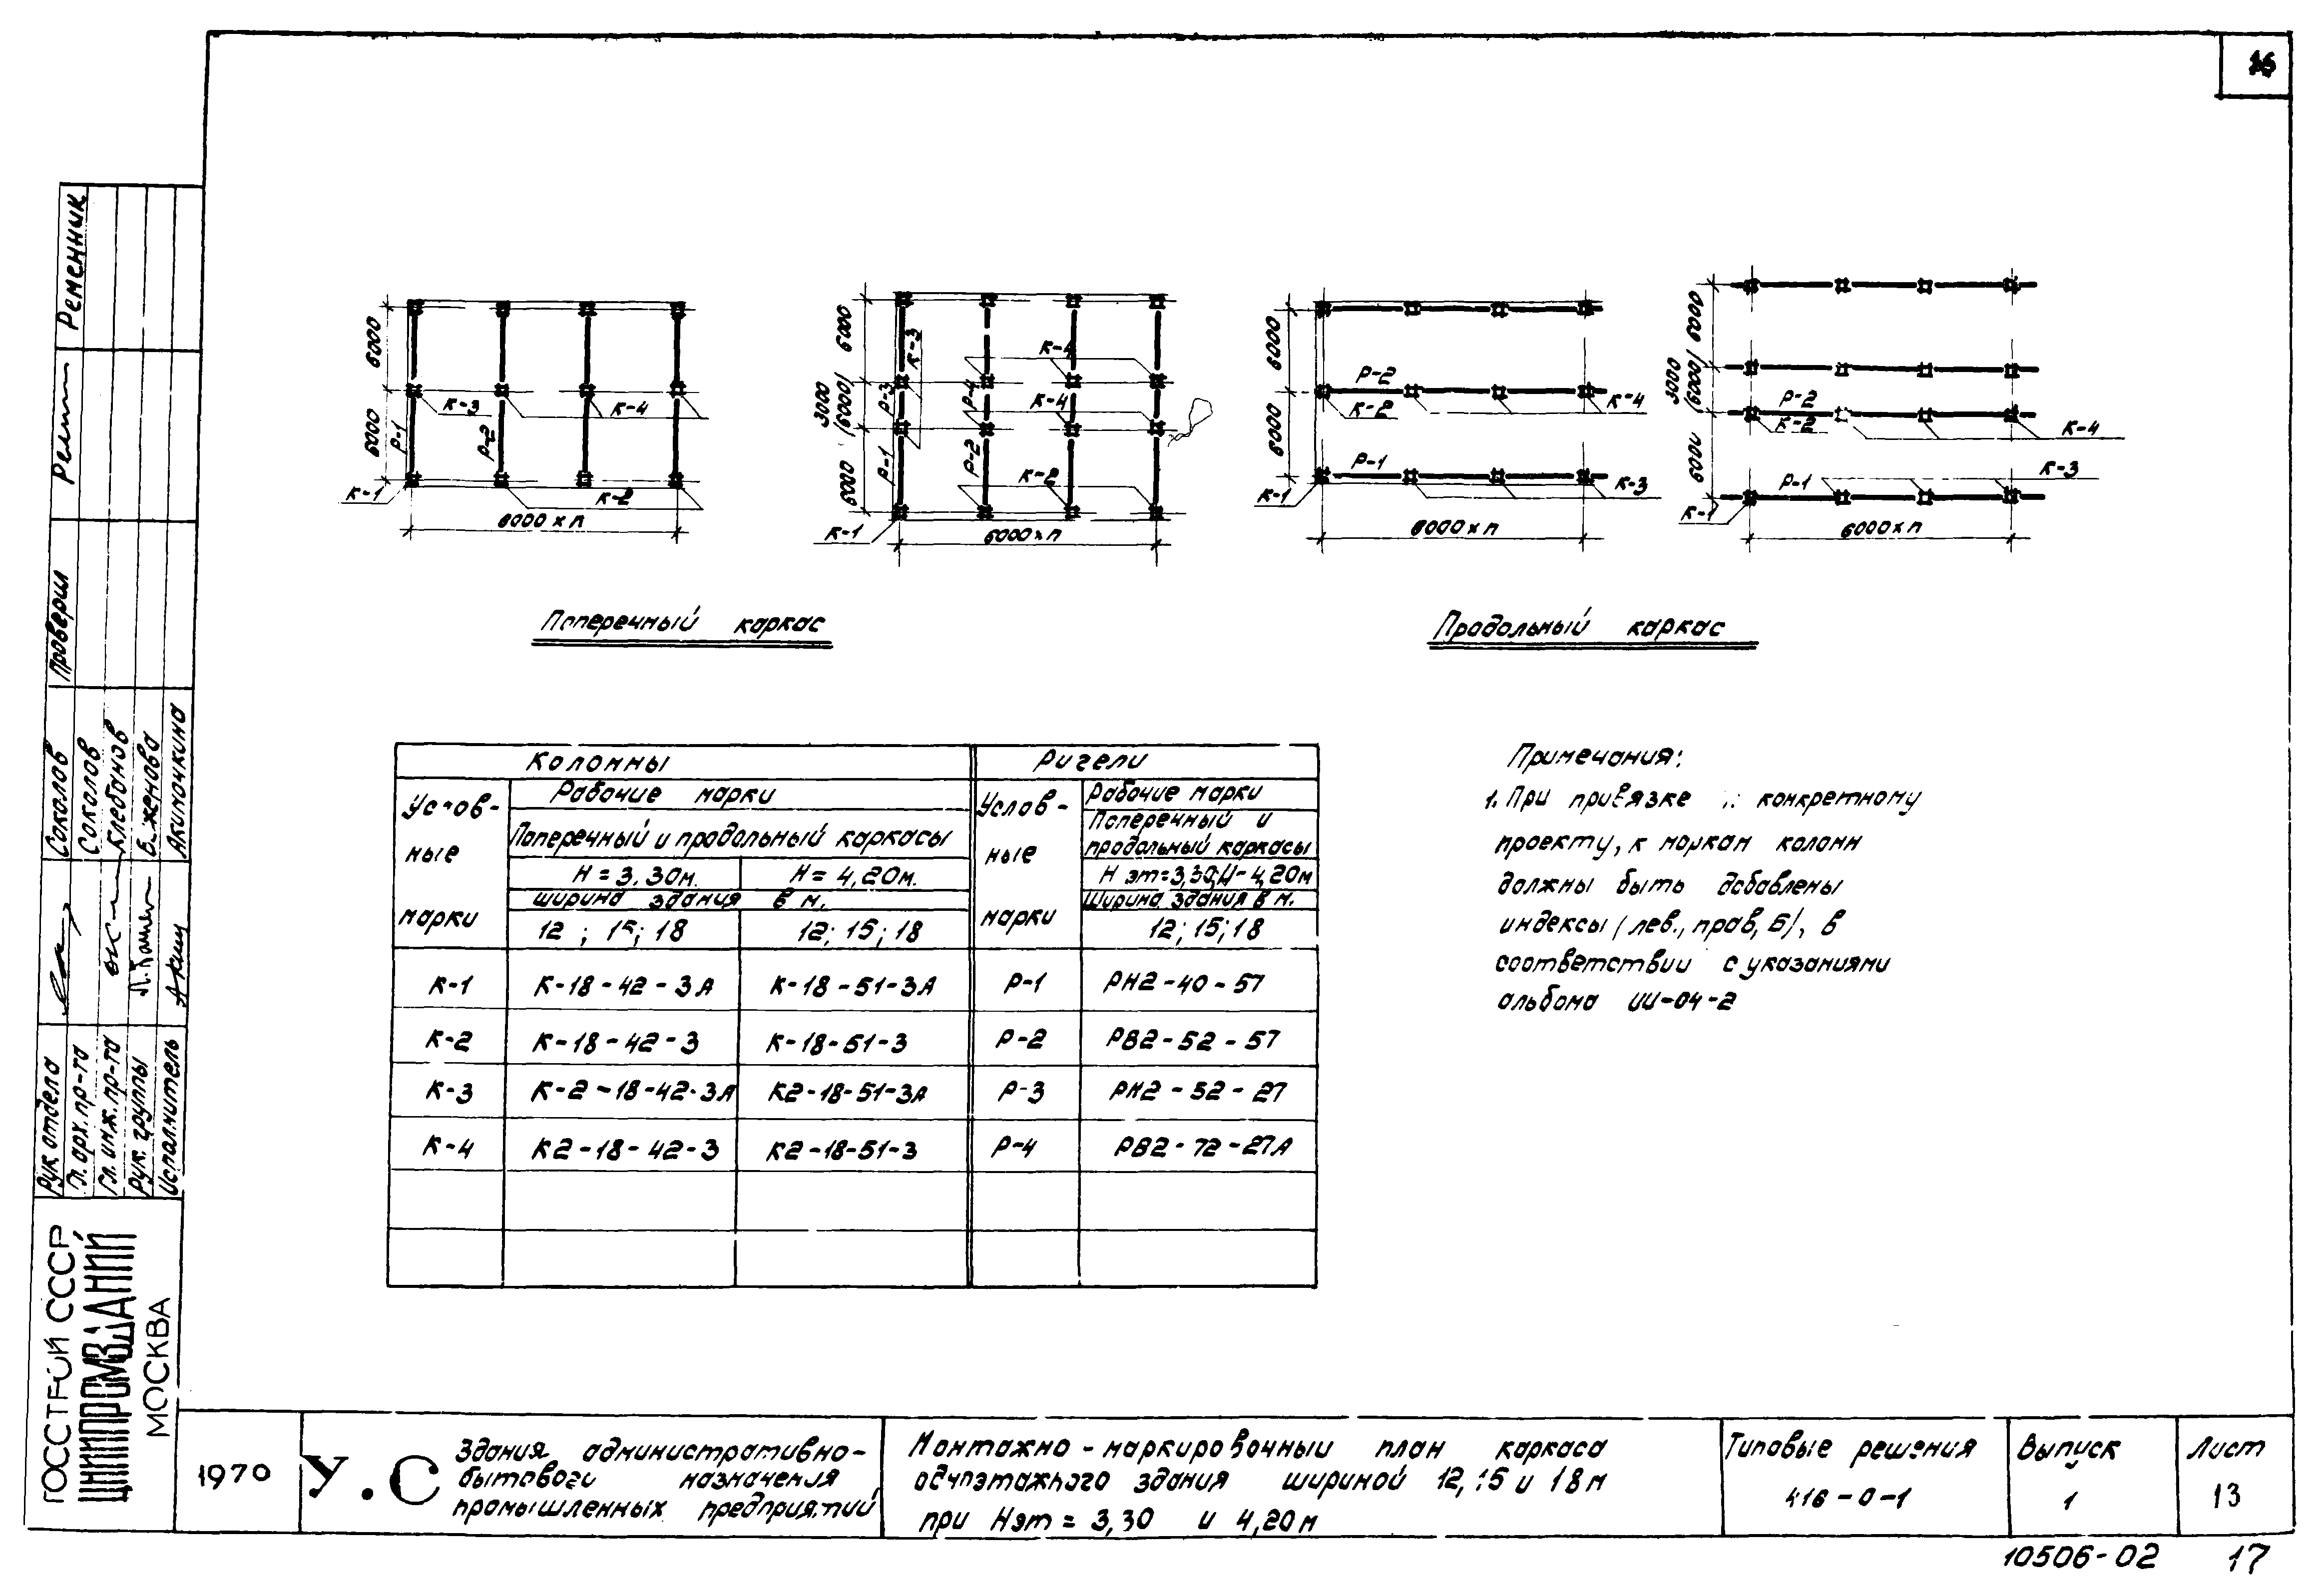 16
6000
6000
Р-1
Р-2
К-3
К-4
К-1
К-2
6000 х п
6000
3000
/6000/
6000
К-3
К-4
Р-3
Р-4
К-4
Р-1
Р-2
К-2
К-1
6000 х п
6000
6000
Р-2
К-2
К-4
Р-1
К-1
К-3
6000 х п
6000
3000
/6000/
6000
Р-2
К-2
К-4
К-3
Р-1
К-1
6000 х п
Поперечный каркас
Продольный каркас
Колонны
Ригели
Услов-
ные
марки
Рабочие марки
Поперечный и продольный каркасы
Н = 3,30м.
Н = 4,20м.
ширина здания в м.
12 ; 15; 18
12; 15; 18
Услов-
ные
марки
Рабочие марки
Поперечный и
продольный каркасы
Н эт=3,30; Н-4,20м
Ширина здания в м.
12; 15; 18
К-1 К-18-42-3А К-18-51-3А Р-1 РН2-40-57
К-2 К-18-42-3 К-18-51-3 Р-2 РВ2-52-57
К-3 К-2-18-42-3А К2-18-51-3А Р-3 РН2-52-27
К-4 К2-18-42-3 К2-18-51-3 Р-4 РВ2-72-27А
Примечания:
1. При привязке к конкретному
проекту, к маркам колонн
должны быть добавлены
индексы /лев., прав, Б/, в
соответствии с указаниями
альбома ИИ-04-2
Ременник
Проверил
Соколов
Соколов
Клебанов
Акимочкина
Рук. отдела
Гл. арх. пр-та
Гл. инж. пр-та
Рук. группы
Исполнитель
ГОССТРОЙ СССР
ЦНИИПРОМЗДАНИЙ
МОСКВА
1970
У.С
Здания административно-
бытового назначения
промышленных предприятий
Монтажно-маркировочный план каркаса
одноэтажного здания шириной 12, 15 и 18м
при Нэт = 3,30 и 4,20м
Типовые решения
416-0-1
Выпуск
1
Лист
13
10506-02 17